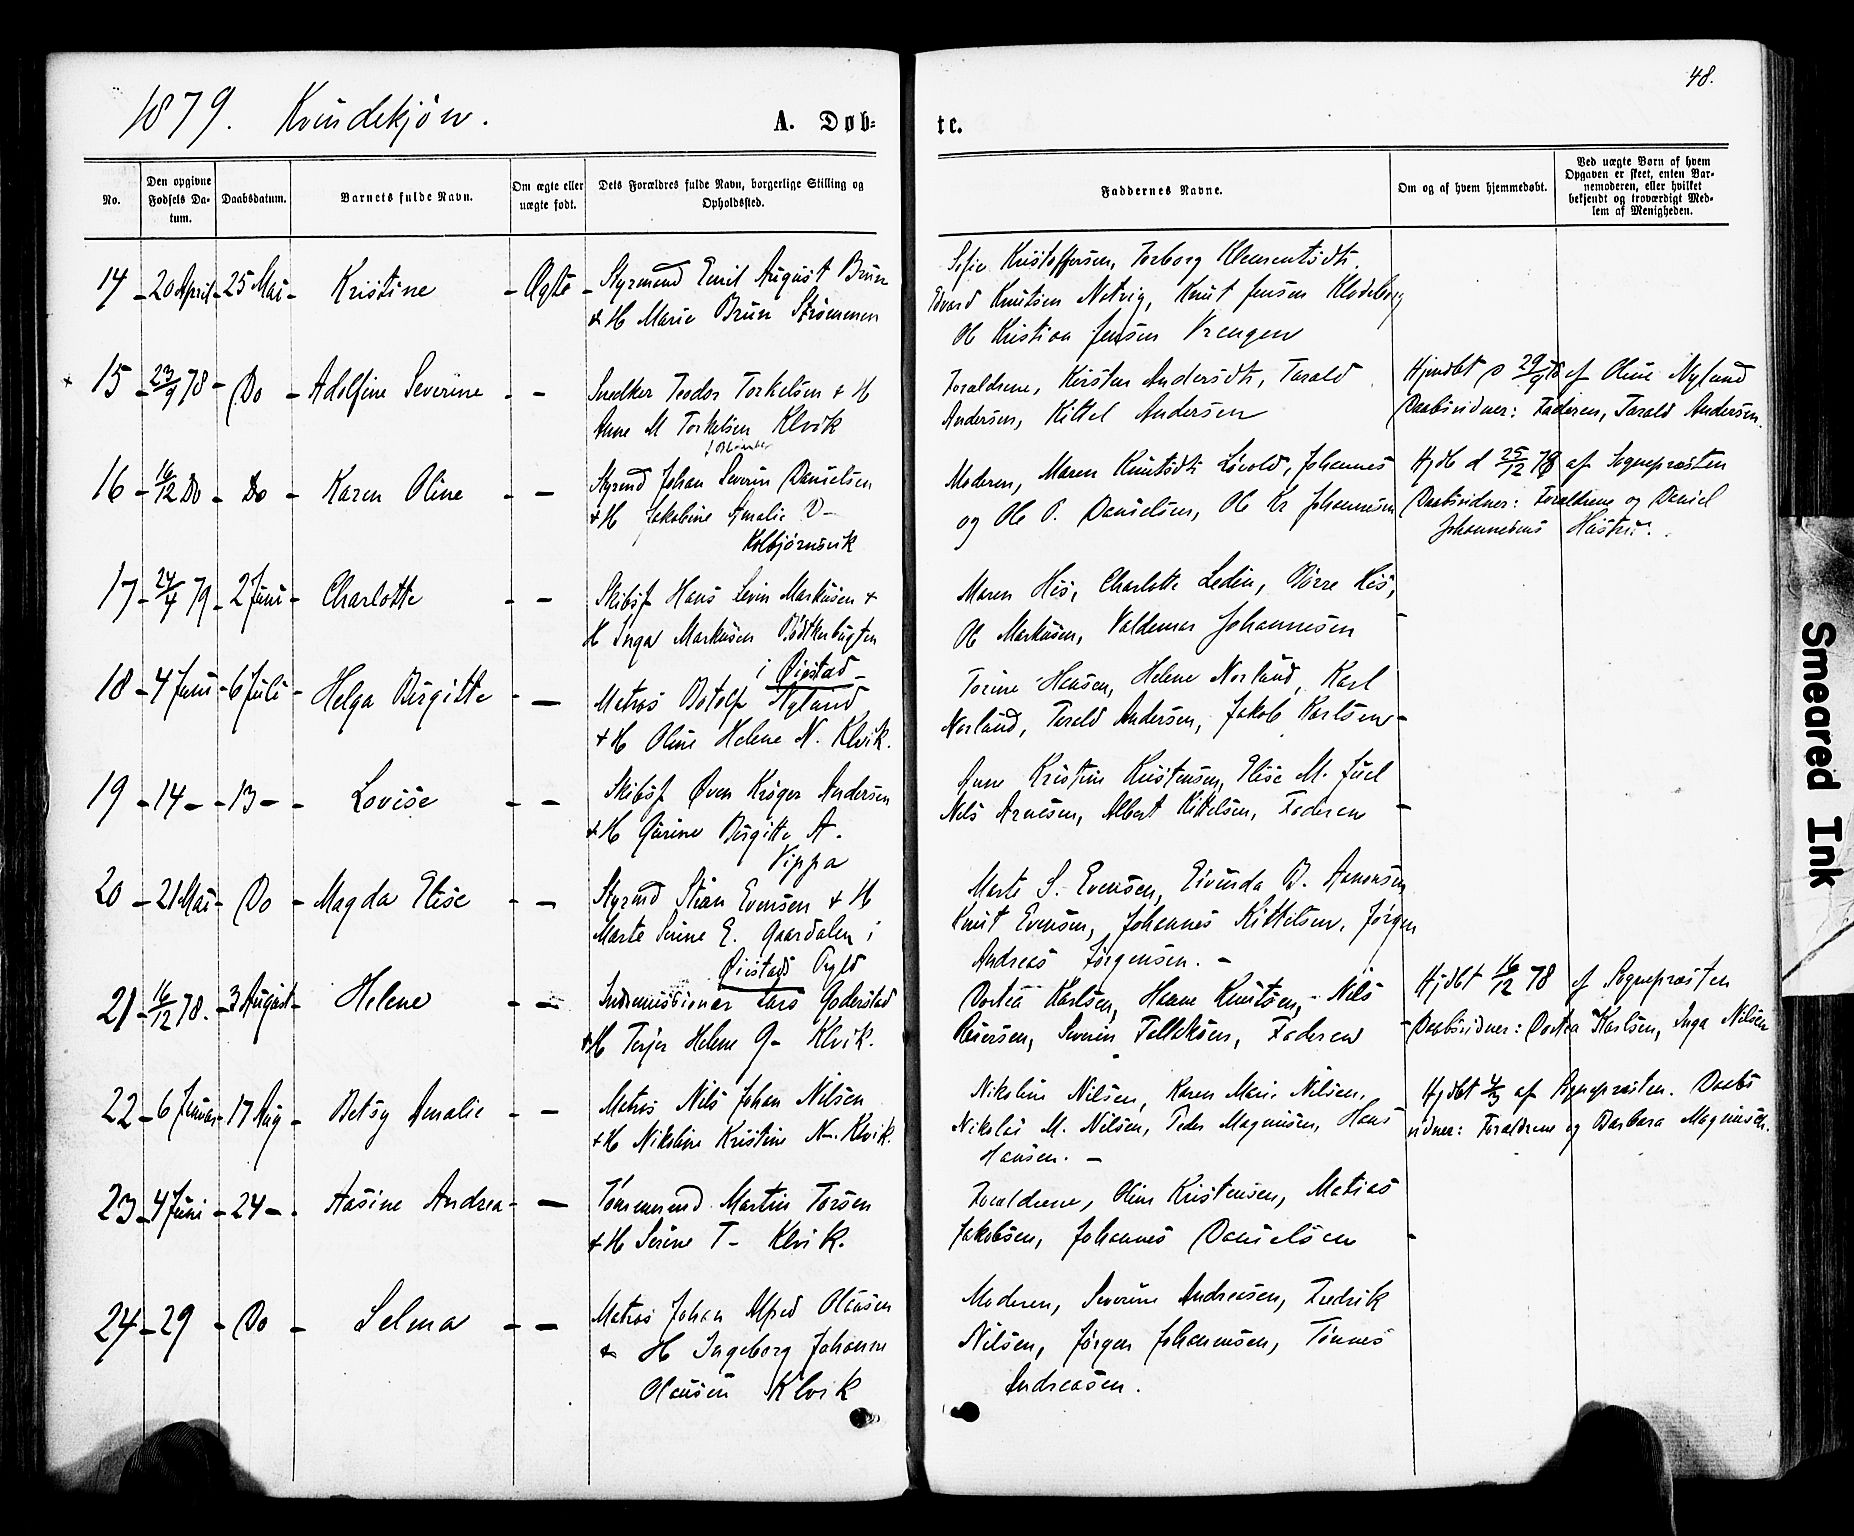 48.
1879. Kvindekjøn.
A. Døb-
te.
No.
Den opgivne Fødsels Da-tum.
Daabsdatum.
Barnets fulde Navn.
Om ægte eller uægte født.
Dets Forældres fulde Navn, borgerlige Stilling og Opholdssted.
Faddernes Navne.
Om og af hvem hjemmedøbt.
Ved uægte Børn af hvem Opgaven er skeet, enten Bar-nemoderen, eller hvilket bekjendt og troværdigt Med-lem af Menigheden.
14 - 20 April - 25 Mai - Kristine - Ægte - Styrmand Emil August Brun
& H Marie Brun Strømmen
Sofie Kristoffersen, Torborg Klementsdt.
Edvard Knutsen Natvig, Knut Jensen Klodeborg
Ole Kristian Jensen Vrengen
15 - 23/9 78 - Do - Adolfine Severine - - Snedker Teodor Torkelsen & H
Anne M Torkelsen Klvik
Forældrene, Kirsten Andersdt., Tarald
Andersen, Kittel Andersen
Hjmdbt d 29/9 78 af Oline Nyland
Daabsvidner: Faderen, Tarald Andersen.
16 - 16/12 Do - Do - Karen Oline - - Styrmd Johan Severin Danielsen
& H Jakobine Amalie D -
Kolbjørnsvik
Moderen, Maren Knutsdt. Løvold, Johannes
og Ole O. Danielsen, Ole Kr Johannesen
Hjdb d 25/12 78 af Sognepræsten
Daabsvidner: Forældrene og Daniel
Johannesens Hustru.
17 - 24/4 79 - 2 Juni - Charlotte - - Skibsf Hans Levin Markusen &
H Inga Markusen Bødtkerbugten
i Øiestad -
Maren His, Charlotte Ledin, Børre His,
Ole Markusen, Valdemar Johannesen -
18 - 4 Juni - 6 Juli - Helga Birgitte - - Matros Botolf Nyland
& H Oline Helene N. Klvik.
Torine Hansen, Helene Norlund, Karl
Norlund, Tarald Andersen, Jakob Karlsen -
19 - 14 - - 13 - - Lovise - - Skibsf Øven Krøger Andersen
& H Gurine Birgitte A.
Vippa
Anne Kristine Kristensen, Elise M. Juel
Nils Arnesen, Albert Kittelsen, Faderen -
20 - 21 Mai - Do - Magda Elise - - Styrmd Stian Evensen & H
Marte Sirine E. Gaardalen i
Øiestads Prgld
Marte S. Evensen, Eivinda B. Aanonsen
Knut Evensen, Johannes Kittelsen, Jørgen
Andreas Jørgensen. -
21 - 16/12 78. - 3 August - Helene - - Indremissionær Lars Goderstad
& H Terjer Helene G - Klvik.
Dortea Karlsen, Hanne Knutsen, - Nils
Reiersen, Severin Tellefsen, Faderen -
Hjdbt 16/12 78 af Sognepræsten
Daabsvidner: Dortea Karlsen, Inga Nilsen
22 - 6 Januar - 17 Aug - Betsy Amalie - - Matros Nils Johan Nilsen
& H Nikoline Kristine N -. Klvik.
Nikoline Nilsen, Karen Marie Nilsen,
Nikolai M. Nilsen, Peder Magnusen, Hans
Hansen. -
Hjdbt af Sognepræsten. Daabs
vidner: Forældrene og Barbara Magnusen.
23 - 4 Juni - 24 - - Aasine Andrea - - Tømmermd Martin Torsen
& H Serine T - Klvik.
Forældrene, Oline Kristensen, Matias
Jakobsen, Johannes Danielsen -
24 - 29 - Do - Selma - - Matros Johan Alfred Olausen
& H Ingeborg Johanne
Olausen Klvik
Moderen, Severine Andreasen, Fredrik
Nilsen, Jørgen Johannesen, Tønnes
Andreasen.
Smeared Ink